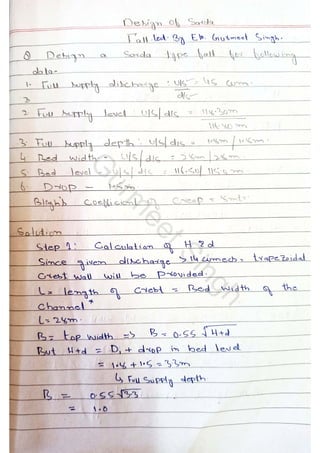 Design of Sarda
Fall Lect. By Er. Gurmeet Singh.
Q Design a Sarda type fall for following
data-
1. Full supply discharge : U/S = 45 cum.
d/s
2
2. Full supply level U/S/d/s = 118.30m
3. Full supply depth : U/S/d/s = 1.8m / 1.8m.
4 Bed width - U/S/d/s = 28m/28m
5. Bed level U/S/d/s
6. Drop - 1.5m
Bligh's coefficient of creep =
Solution
Step 1: Calculation of H & d
Since given discharge > 14 cumech. trapezoidal
Crest wall will be Provided.
L = length of Crest = Bed width of the
Channel
L = 28m.
B = top width => B = 0.55 √H+d
But H+d = D1 + drop in bed level
= 1.8 + 1.5 = 3.3m
↳ Full Supply depth
B = 0.55 √3.3
= 1.0
Gurmeet Singh